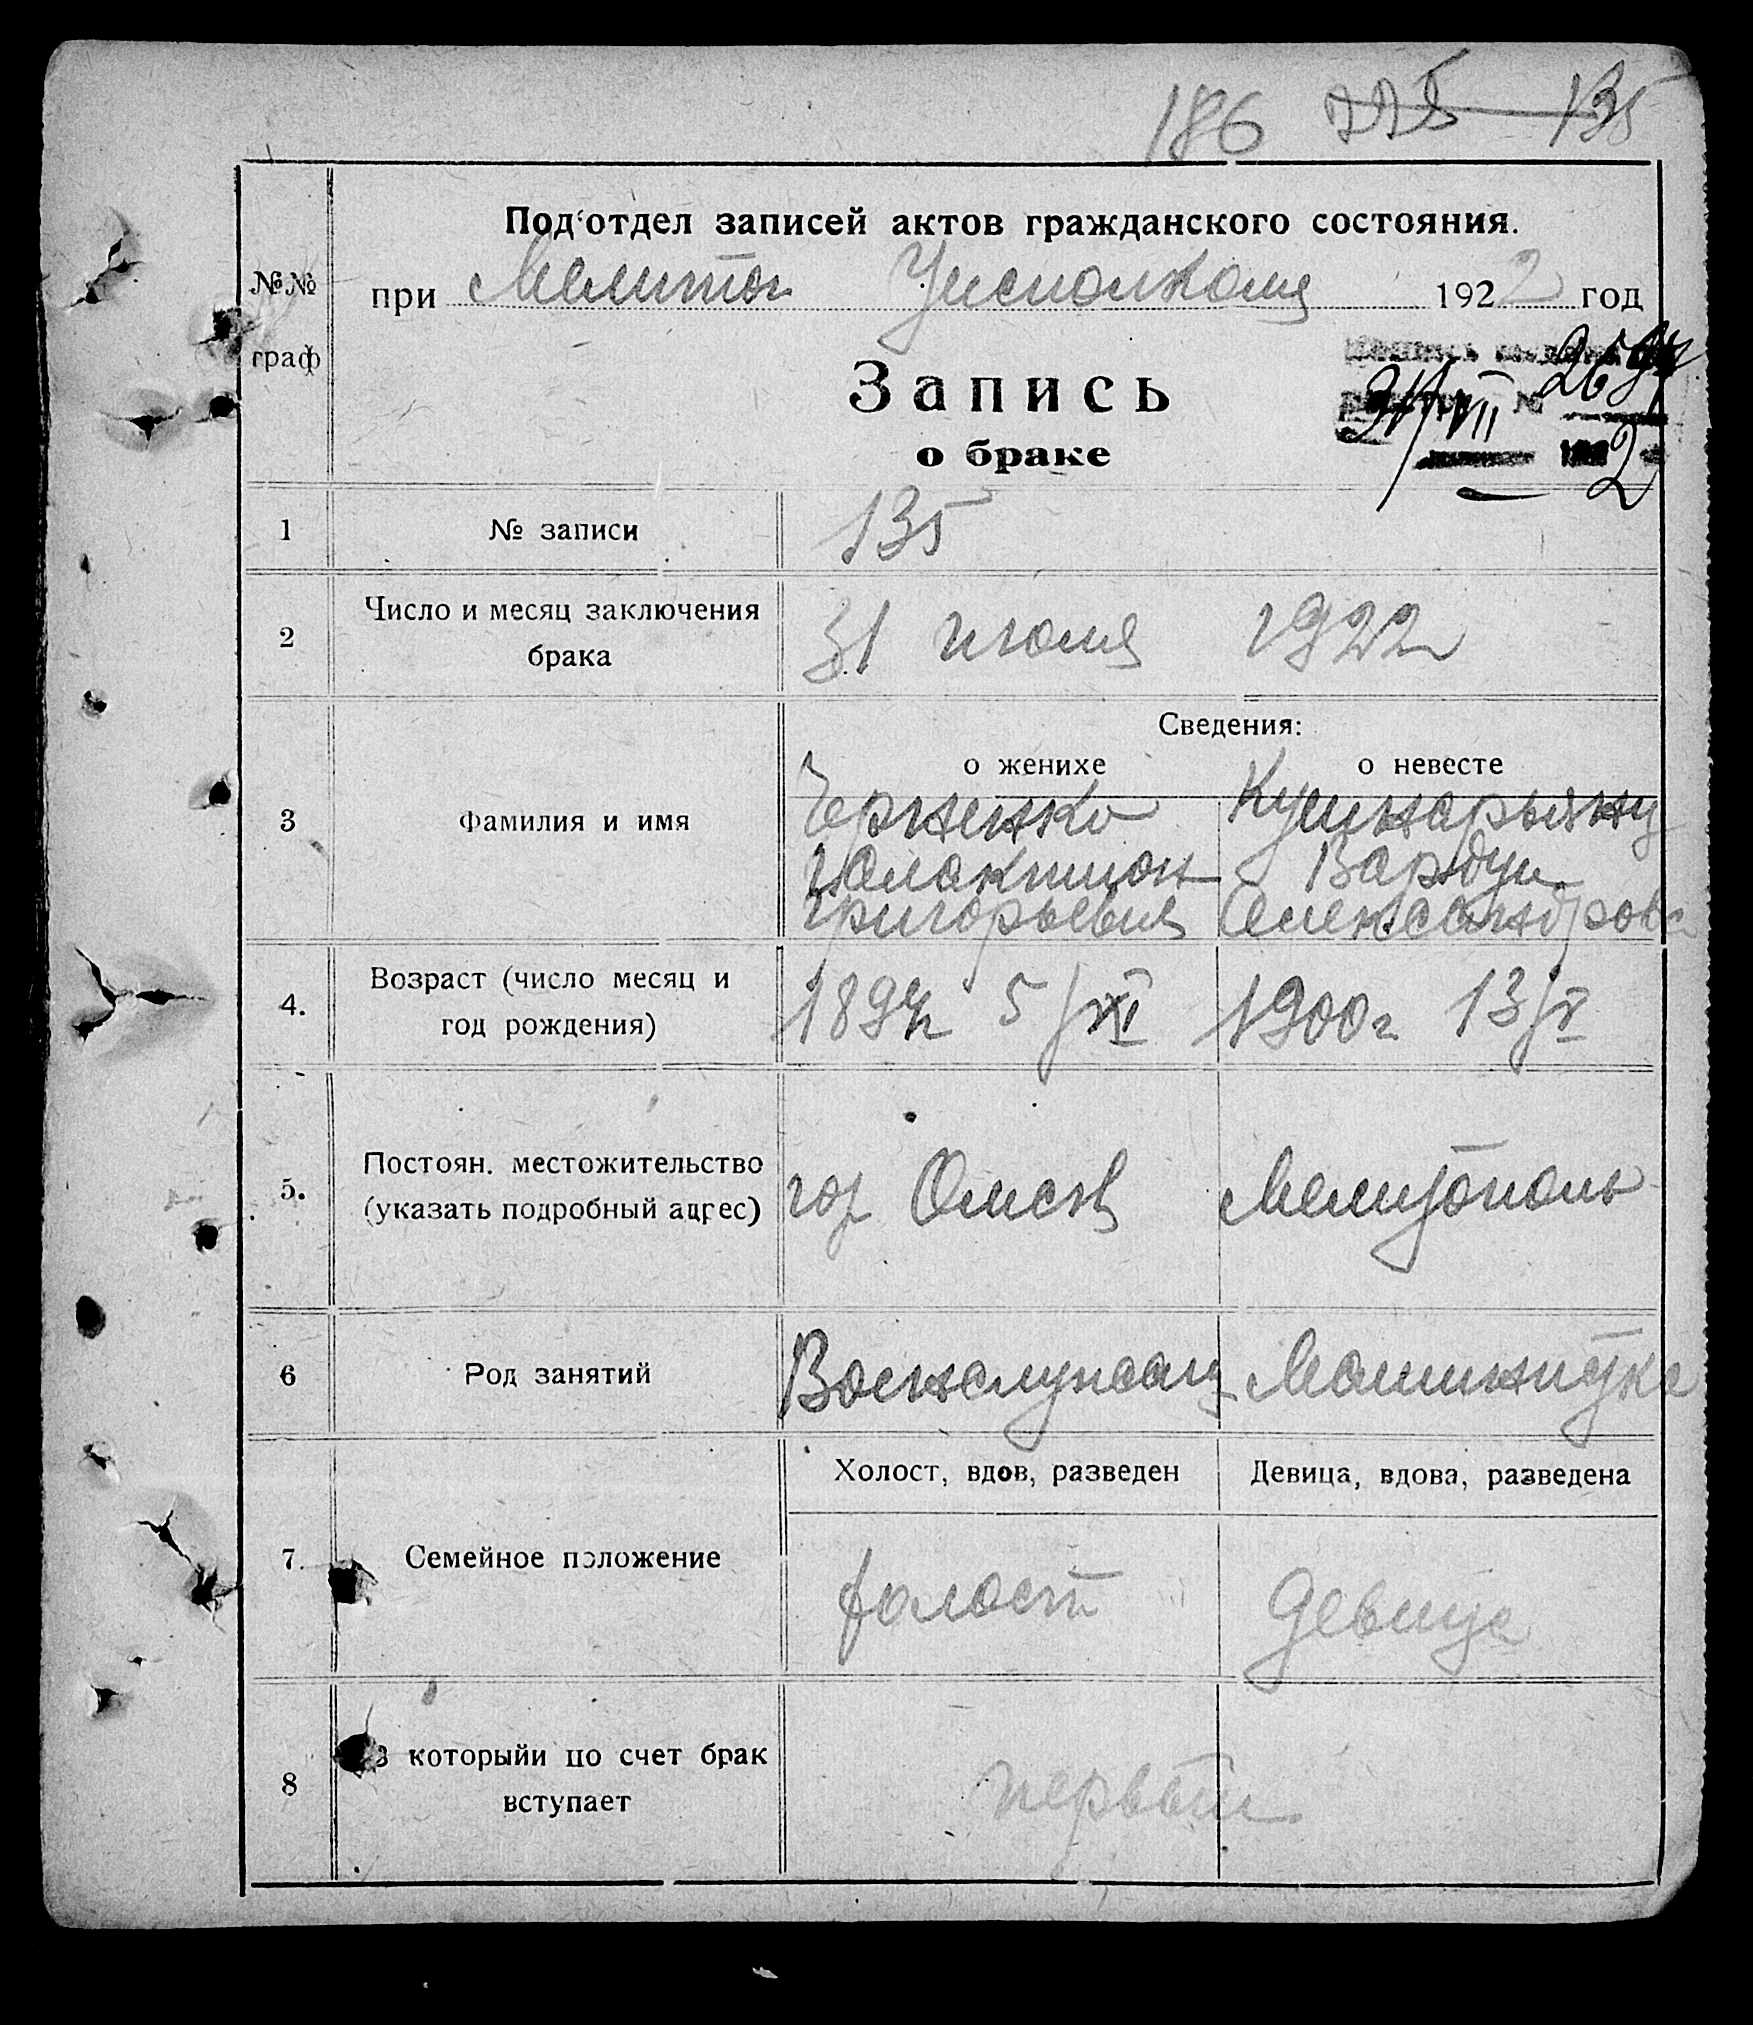 186 225 135
Под‘отдел записей актов гражданского состояния.
№№
граф
при Мелитоп Уисполкома 1922 год
Запись
о браке
31/VII № 2694
1922
1 № записи 135
2 Число и месяц заключения
брака
31 июля 1922
Сведения:
о женихе о невесте
3 Фамилия и имя
Черненко
Галактион
Григорьевич
Кушнарьянц
Вардуи
Александрова
4. Возраст (число месяц и
год рождения)
1897г 5/XI 1900г 13/V
5. Постоян. местожительство
(указать подробный адрес)
гор Омск Мелитополь
6 Род занятий Военнслужащ Машинистка
Холост, вдов, разведен Девица, вдова, разведена
7. Семейное положение холост девица
8 В которыйи по счет брак
вступает
первый